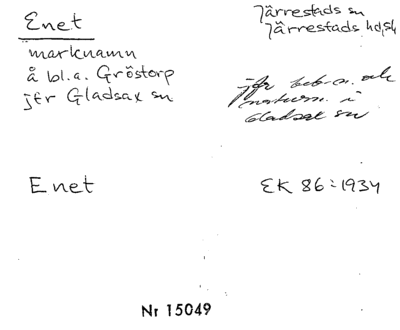 Enet
Järrestads sn
Järrestads hd, Sk
marknamn
å bl.a. Gröstorp
jfr Gladsax sn
jfr beb.n. och
naturn. i
Gladsax sn
Enet
EK 86:1934
Nr 15049